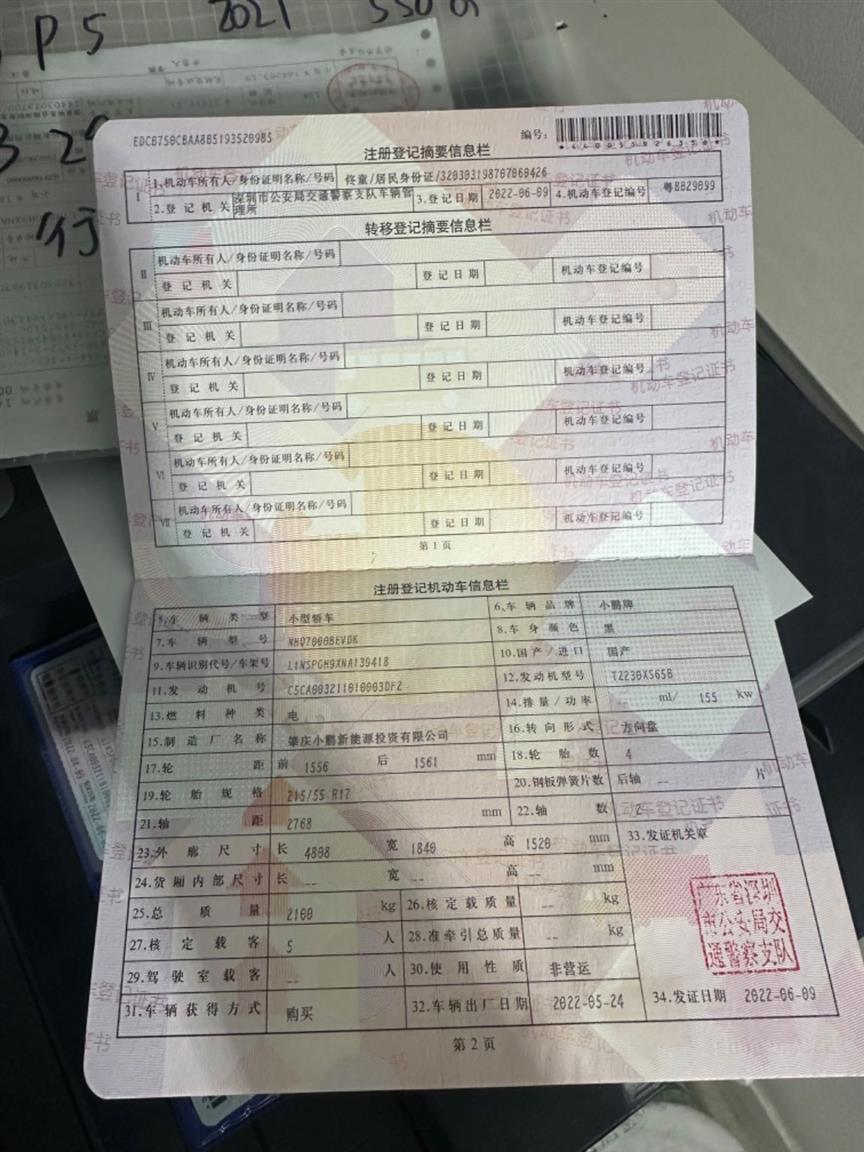 P5 2021
EDCB750CBAA885193520985
编号:
注册登记摘要信息栏
Ⅰ 1.机动车所有人/身份证明名称/号码 佟童/居民身份证/320303198707060426
2.登记机关 深圳市公安局交通警察支队车辆管理所 3.登记日期 2022-06-09 4.机动车登记编号 粤BB29099
转移登记摘要信息栏
Ⅱ 机动车所有人/身份证明名称/号码
登记机关 登记日期 机动车登记编号
Ⅲ 机动车所有人/身份证明名称/号码
登记机关 登记日期 机动车登记编号
Ⅳ 机动车所有人/身份证明名称/号码
登记机关 登记日期 机动车登记编号
Ⅴ 机动车所有人/身份证明名称/号码
登记机关 登记日期 机动车登记编号
Ⅵ 机动车所有人/身份证明名称/号码
登记机关 登记日期 机动车登记编号
Ⅶ 机动车所有人/身份证明名称/号码
登记机关 登记日期 机动车登记编号
第1页
注册登记机动车信息栏
5.车辆类型 小型轿车 6.车辆品牌 小鹏牌
7.车辆型号 NHQ7000BEVDK 8.车身颜色 黑
9.车辆识别代号/车架号 L1NSPGH9XNA139418 10.国产/进口 国产
11.发动机号 C5CA003211010003DF2 12.发动机型号 TZ230XS65B
13.燃料种类 电 14.排量/功率 -- ml/ 155 kw
15.制造厂名称 肇庆小鹏新能源投资有限公司 16.转向形式 方向盘
17.轮距 前 1556 后 1561 mm 18.轮胎数 4
19.轮胎规格 215/55 R17 20.钢板弹簧片数 后轴 -- 片
21.轴距 2768 mm 22.轴数 2
23.外廓尺寸 长 4808 宽 1840 高 1520 mm 33.发证机关章
24.货厢内部尺寸 长 -- 宽 -- 高 -- mm
25.总质量 2100 kg 26.核定载质量 -- kg
27.核定载客 5 人 28.准牵引总质量 -- kg
29.驾驶室载客 -- 人 30.使用性质 非营运
31.车辆获得方式 购买 32.车辆出厂日期 2022-05-24 34.发证日期 2022-06-09
广东省深圳
市公安局交
通警察支队
第2页